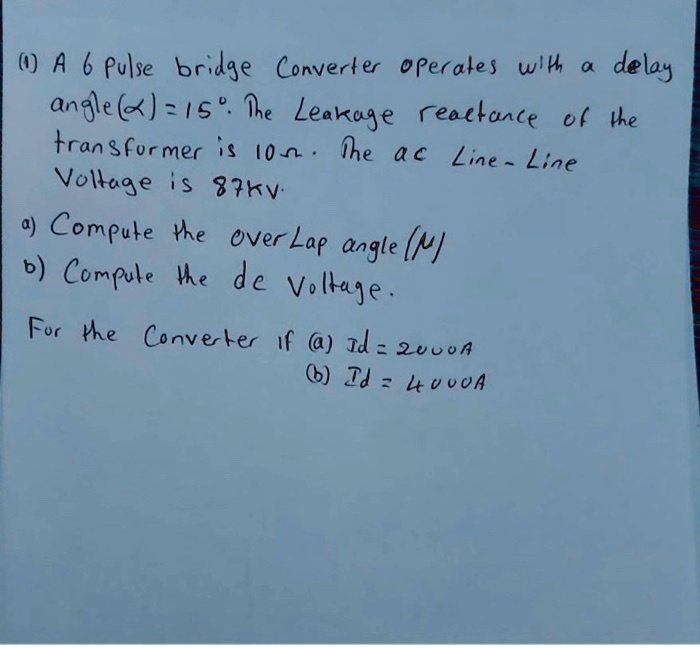 (1) A 6 pulse bridge Converter operates with a delay
angle(α) = 15°. The Leakage reactance of the
transformer is 10Ω. The ac Line-Line
Voltage is 87KV.
a) Compute the overLap angle (μ)
b) Compute the dc Voltage.
For the Converter if (a) Id = 2000A
(b) Id = 4000A